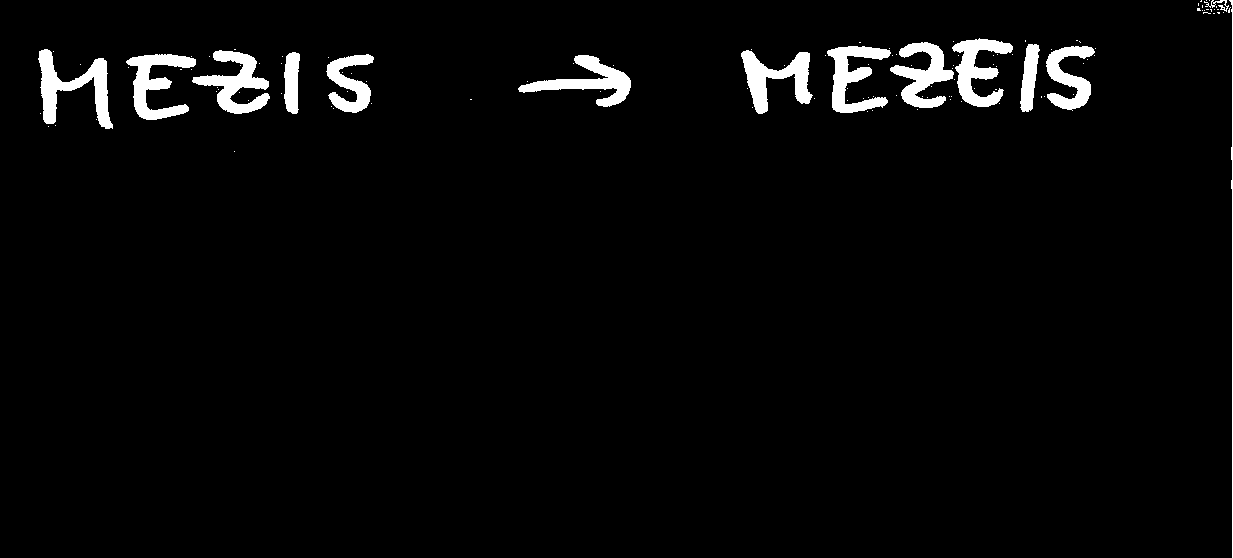 MEZIS → MEZEIS